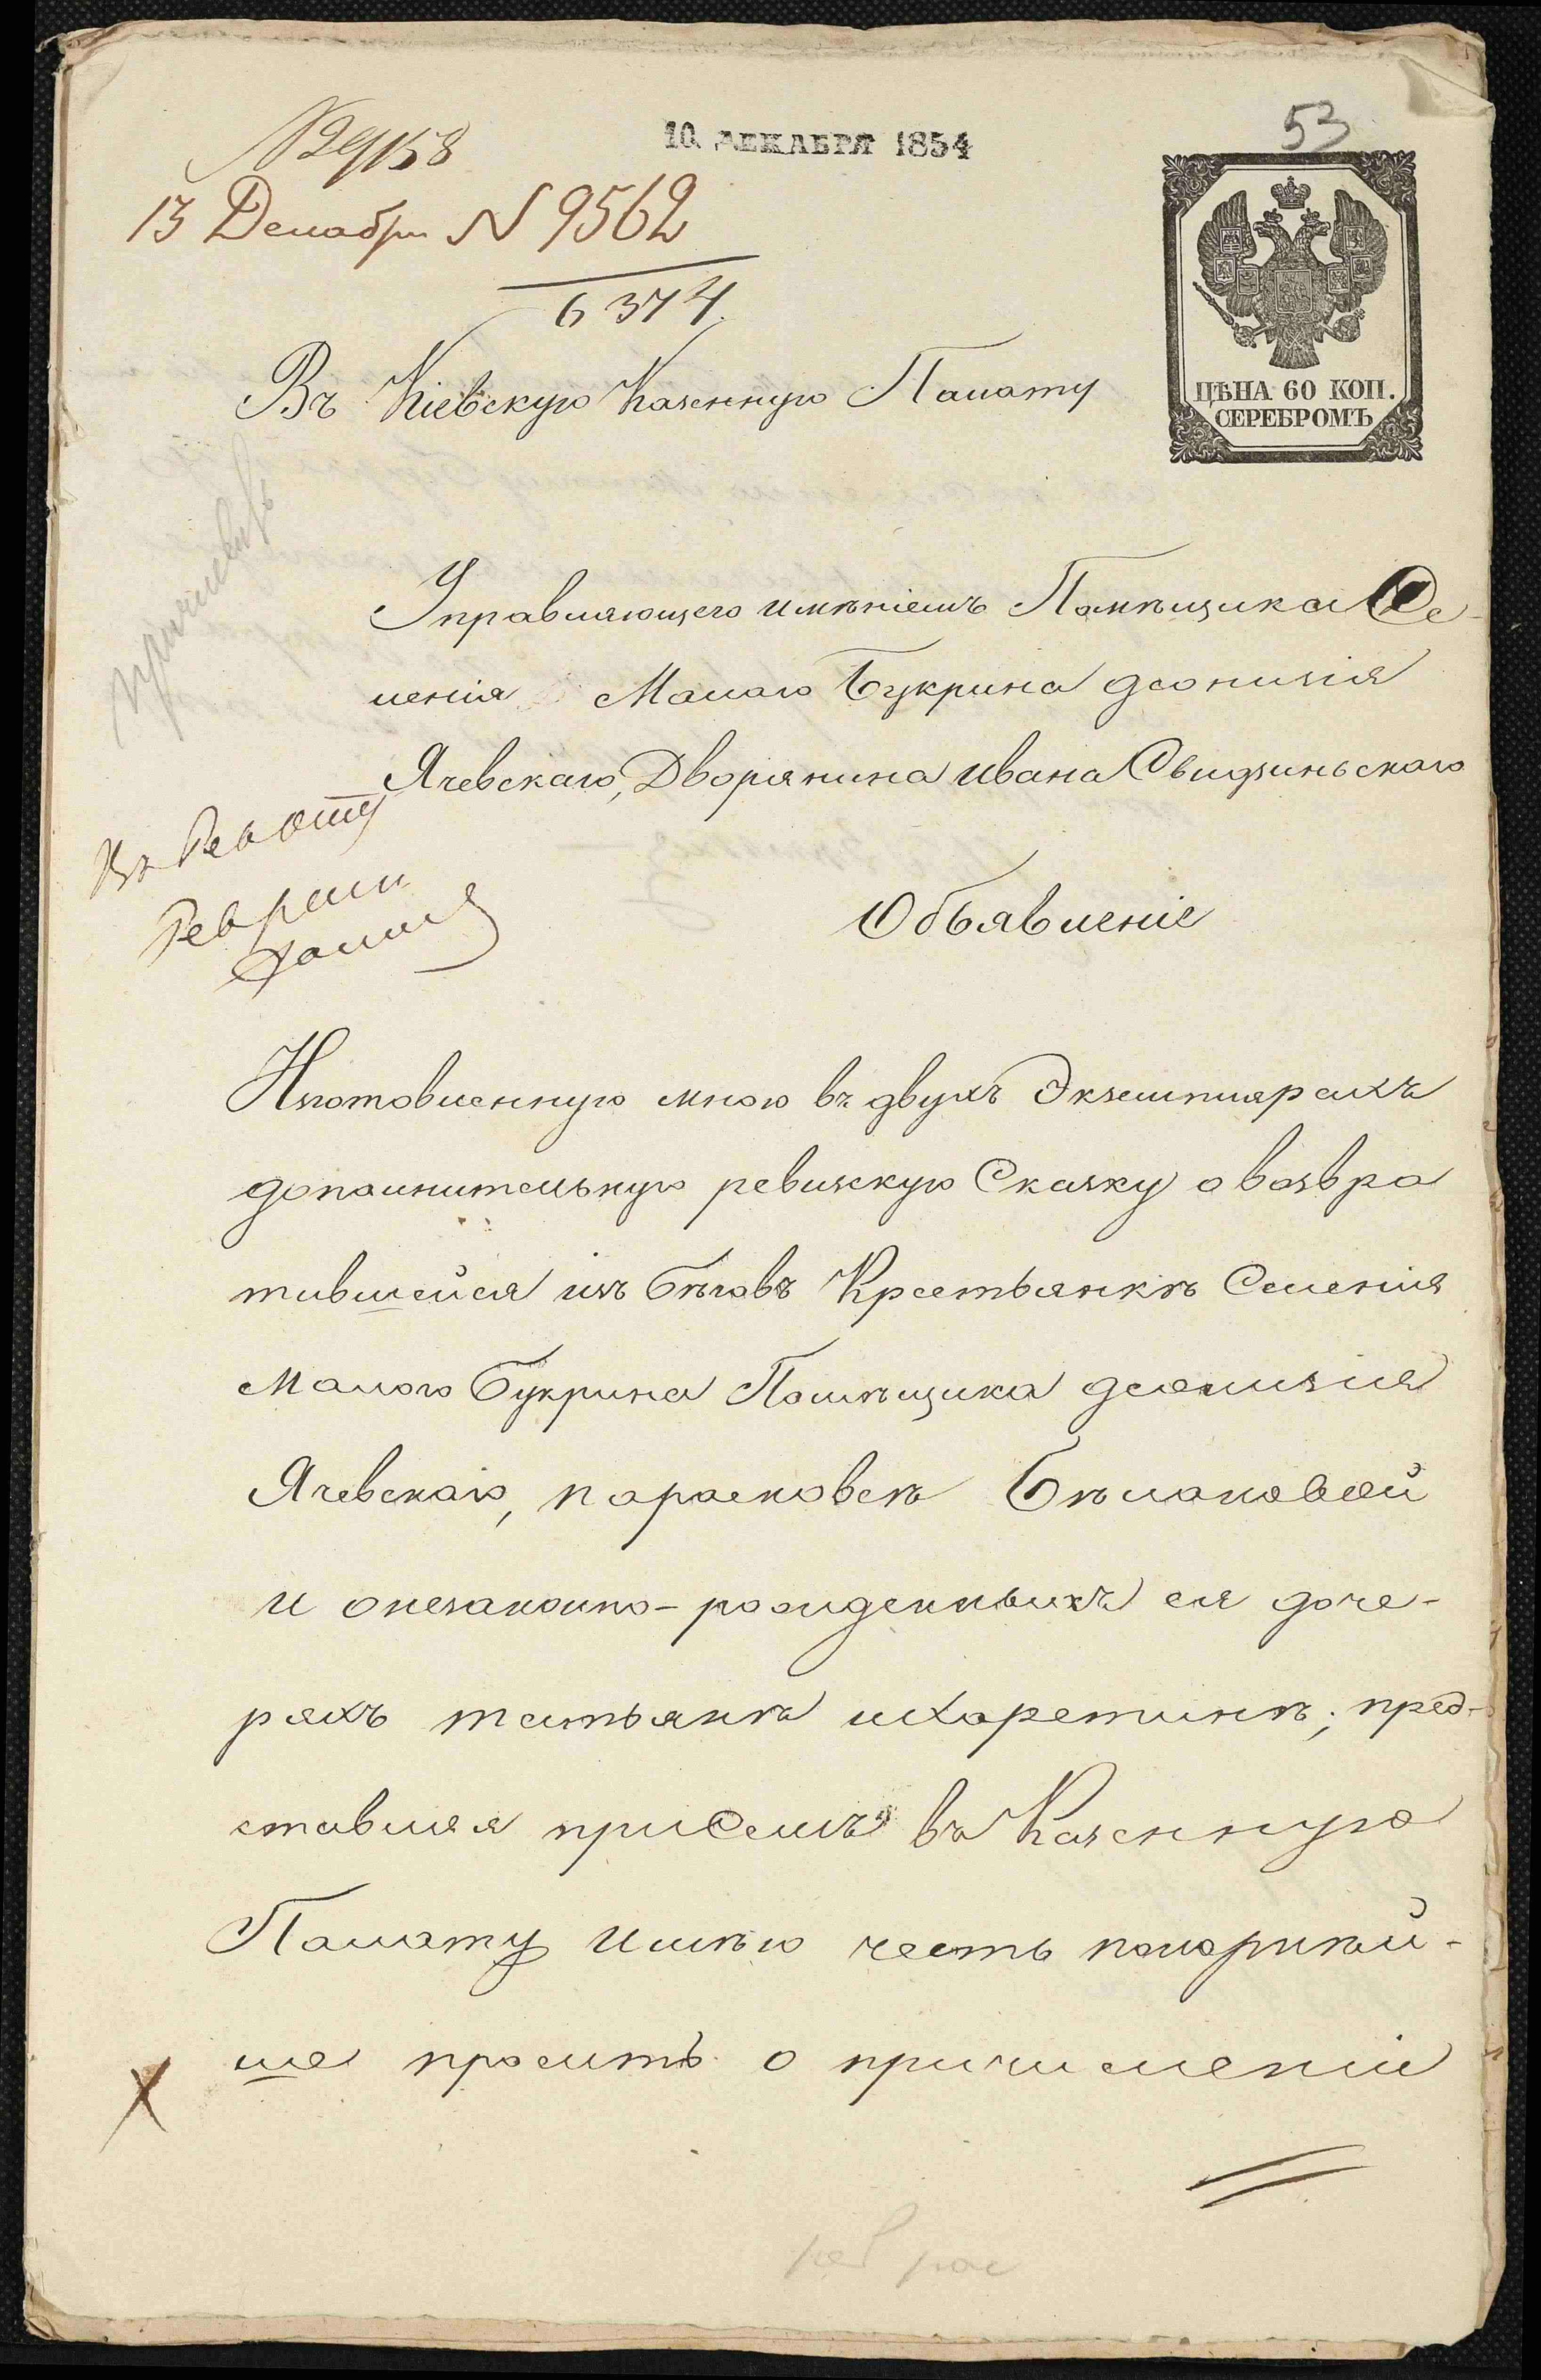 53
10 ДЕКАБРЯ 1854
13 Декабря N 9562
6374
ЦѢНА 60 КОП.
СЕРЕБРОМЪ
Въ Кіевскую Казенную Палату
Управляющего имѣніемъ Помѣщика Се-
ленія Малаго Букрина деонизія
Ячевскаго, Дворянина ивана Свидзиньскаго
Объявленіе
Изготовленную мною въ двухъ Экземплярахъ
дополнительную ревизкую Сказку о возвра
тившейся изъ бѣговъ Крестьянкѣ Селенія
Малого Букрина Помѣщика деонизія
Ячевскаго, парасковеѣ Бѣлаковой
и онезаконно-рожденныхъ ея доче-
ряхъ татьянѣ ихаретинѣ; пред-
ставляя приСемъ въ Казенную
Палату имѣю честь покорнѣй-
ше просить о причисленіи
рев рас